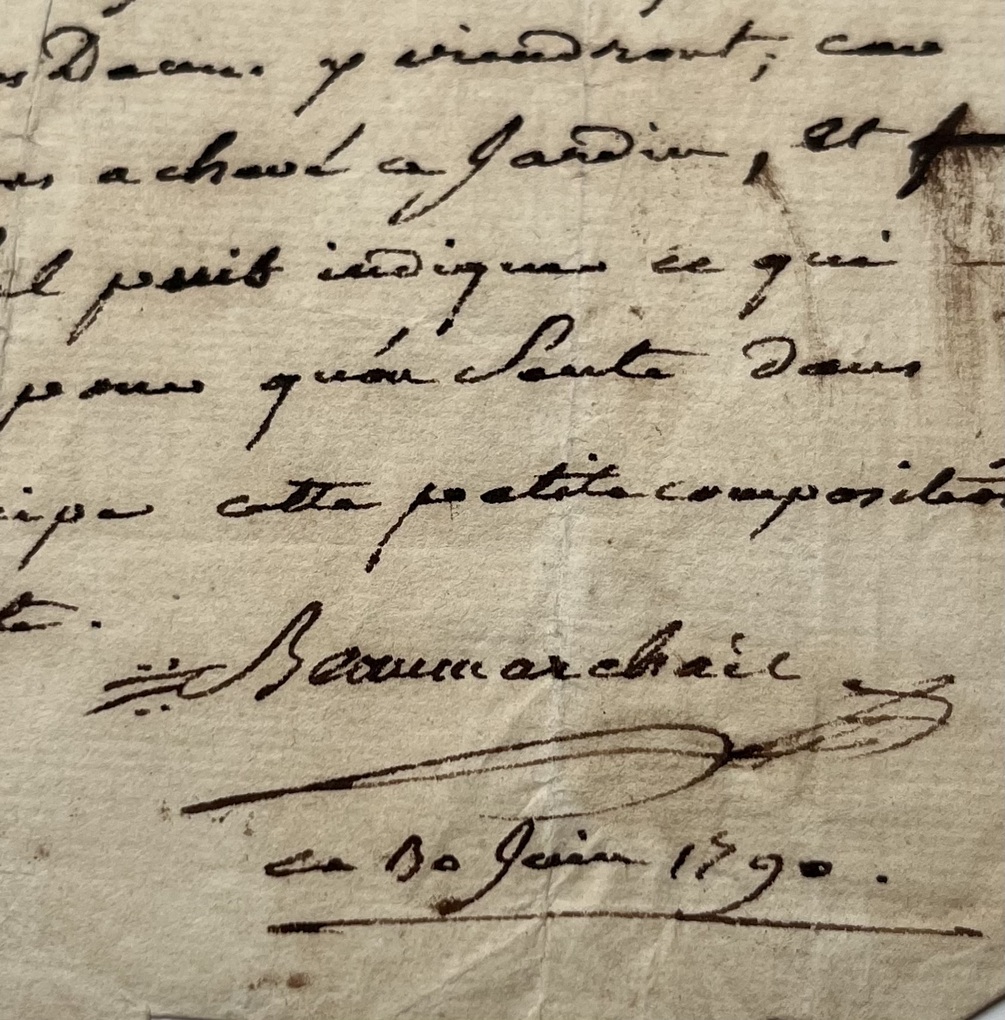 Dames y viendront; car
achevé ce Jardin, et
il puisse indiquer ce qui
pour qu'on Sente dans
cipe cette petite compositi
te.
Beaumarchais
ce 30 Juin 1790.